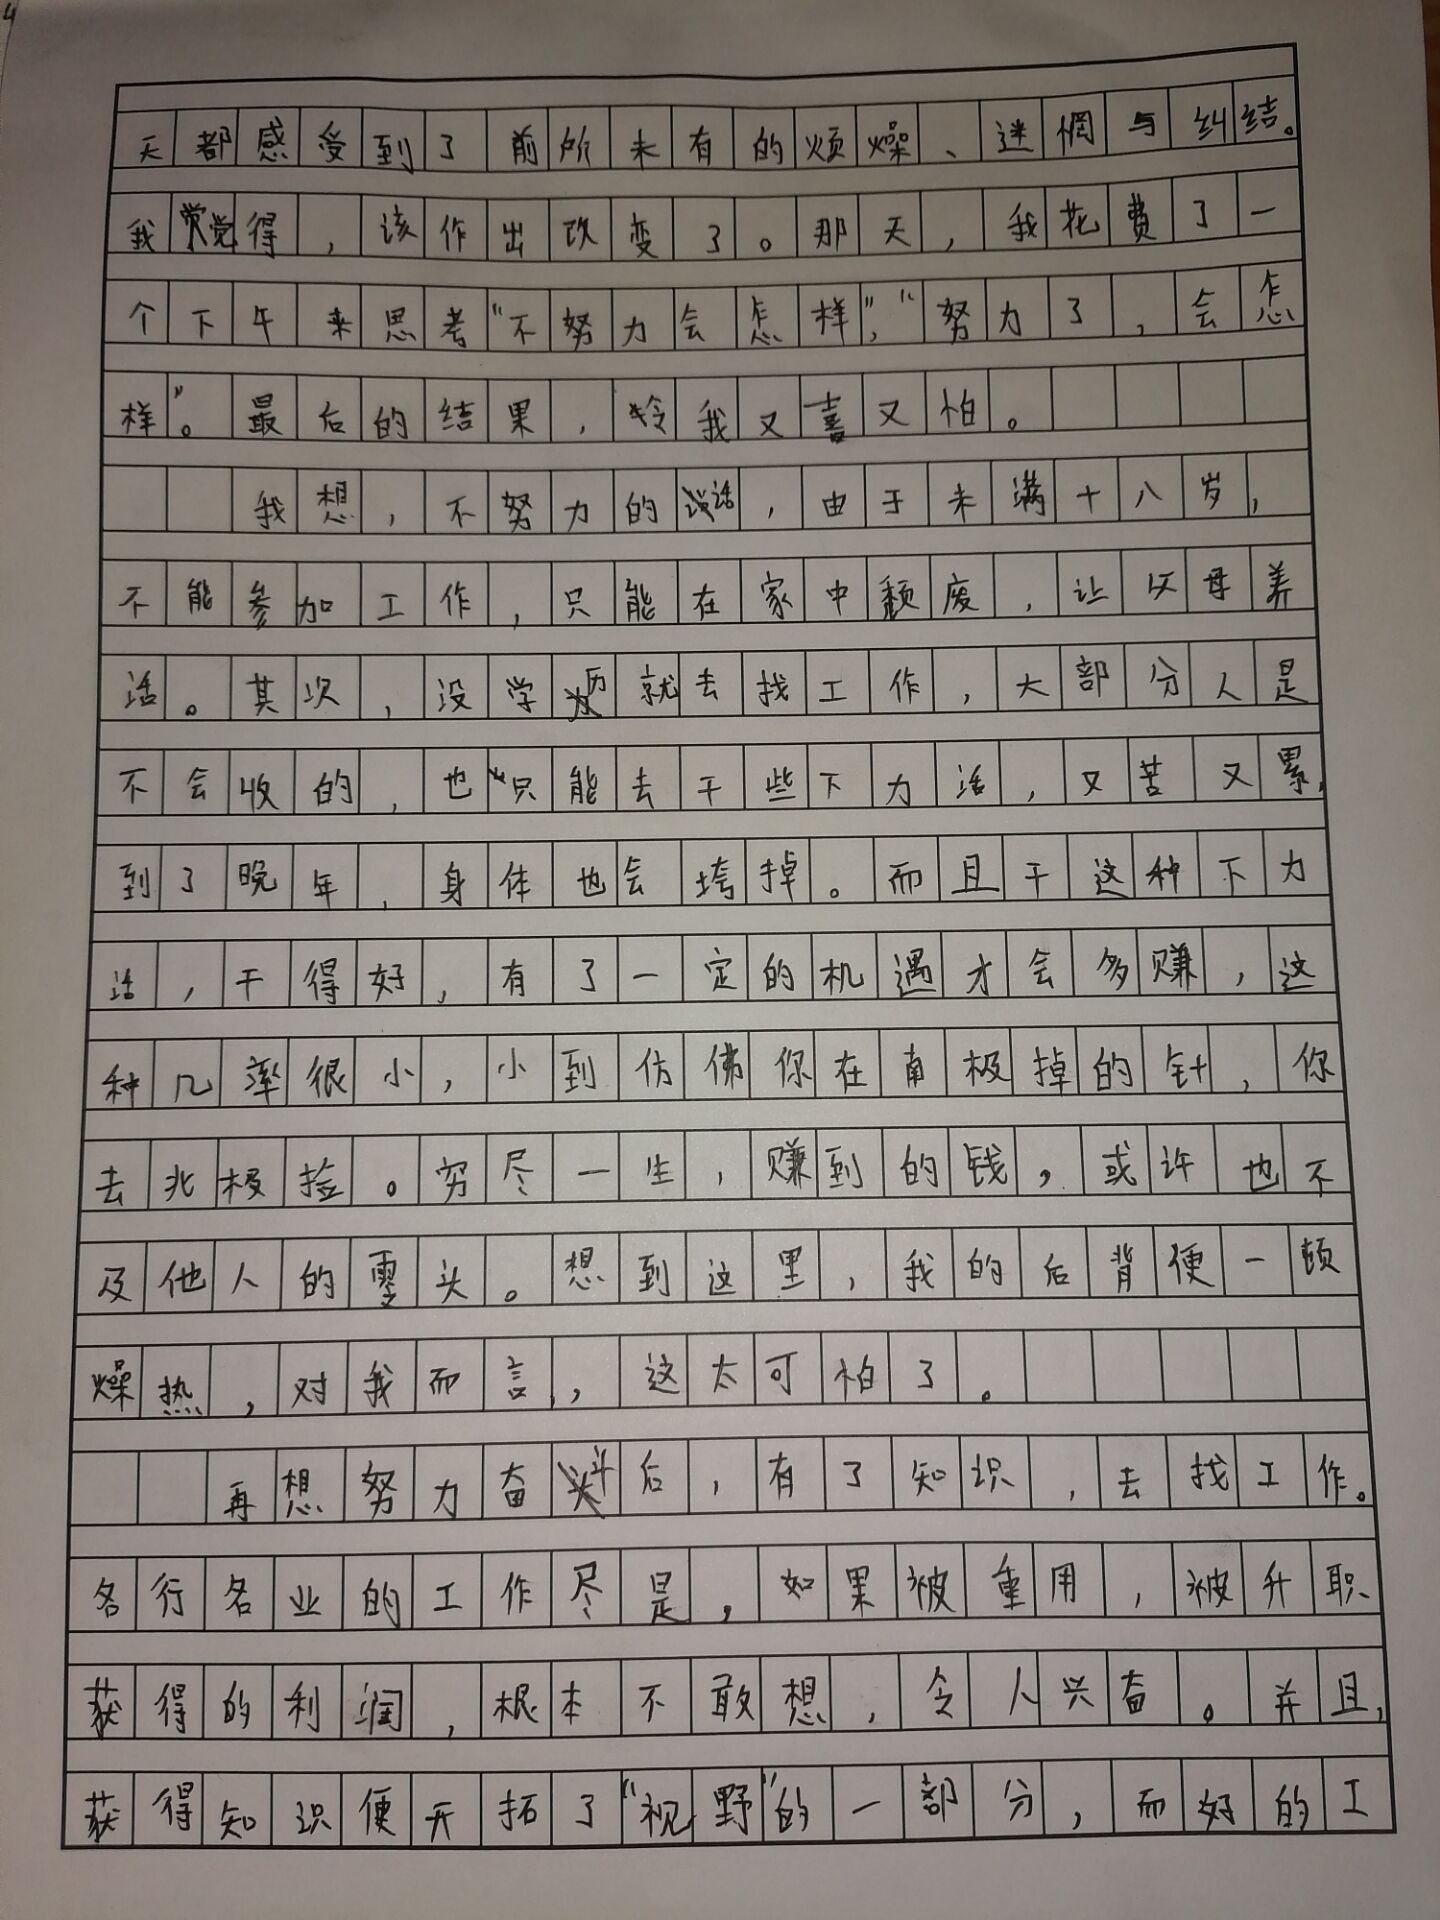 天都感受到了前所未有的烦燥、迷惘与纠结。
我觉得，该作出改变了。那天，我花费了一
个下午来思考“不努力会怎样”，“努力了，会怎
样”。最后的结果，令我又喜又怕。
我想，不努力的话，由于未满十八岁，
不能参加工作，只能在家中颓废，让父母养
活。其次，没学历就去找工作，大部分人是
不会收的，也只能去干些下力活，又苦又累，
到了晚年，身体也会垮掉。而且干这种下力
活，干得好，有了一定的机遇才会多赚，这
种几率很小，小到仿佛你在南极掉的针，你
去北极捡。穷尽一生，赚到的钱，或许也不
及他人的零头。想到这里，我的后背便一顿
燥热，对我而言，这太可怕了。
再想努力奋斗后，有了知识，去找工作。
各行各业的工作尽是，如果被重用，被升职
获得的利润，根本不敢想，令人兴奋。并且，
获得知识便开拓了“视野”的一部分，而好的工